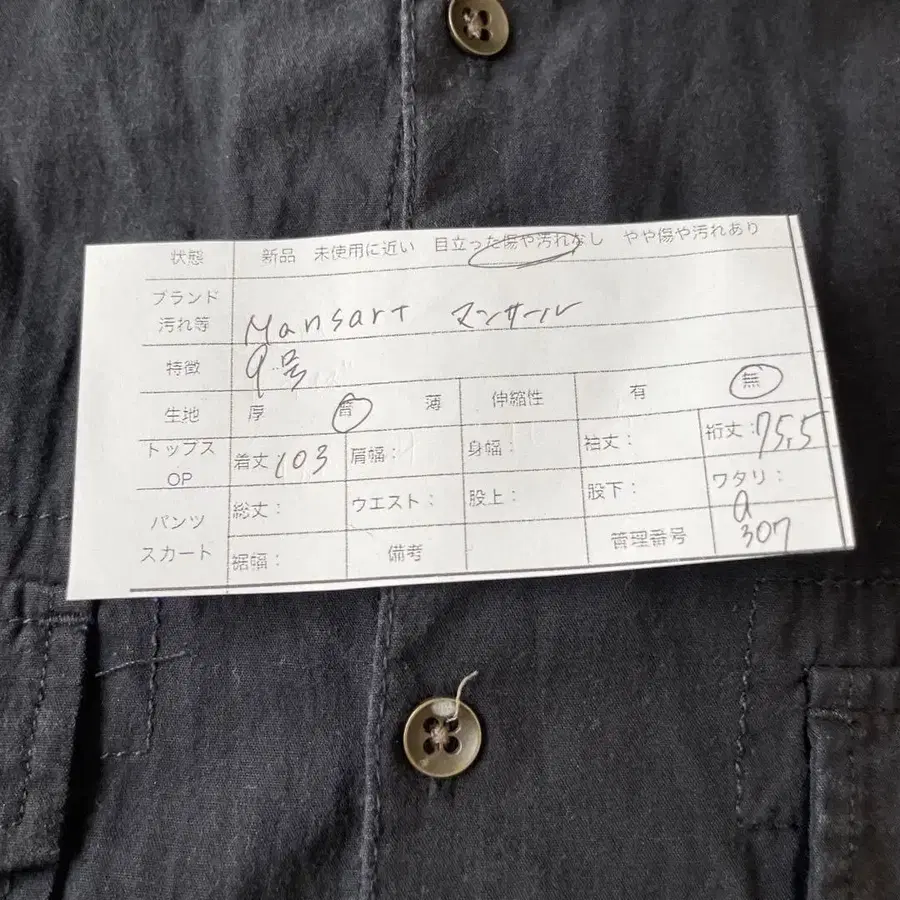 状態 新品 未使用に近い 目立った傷や汚れなし やや傷や汚れあり
ブランド
汚れ等 Mansart マンサール
特徴 9号
生地 厚 普 薄 伸縮性 有 無
トップス
OP 着丈:103 肩幅: 身幅: 袖丈: 裄丈:75.5
パンツ
スカート 総丈: ウエスト: 股上: 股下: ワタリ:
裾幅: 備考 管理番号 a
307